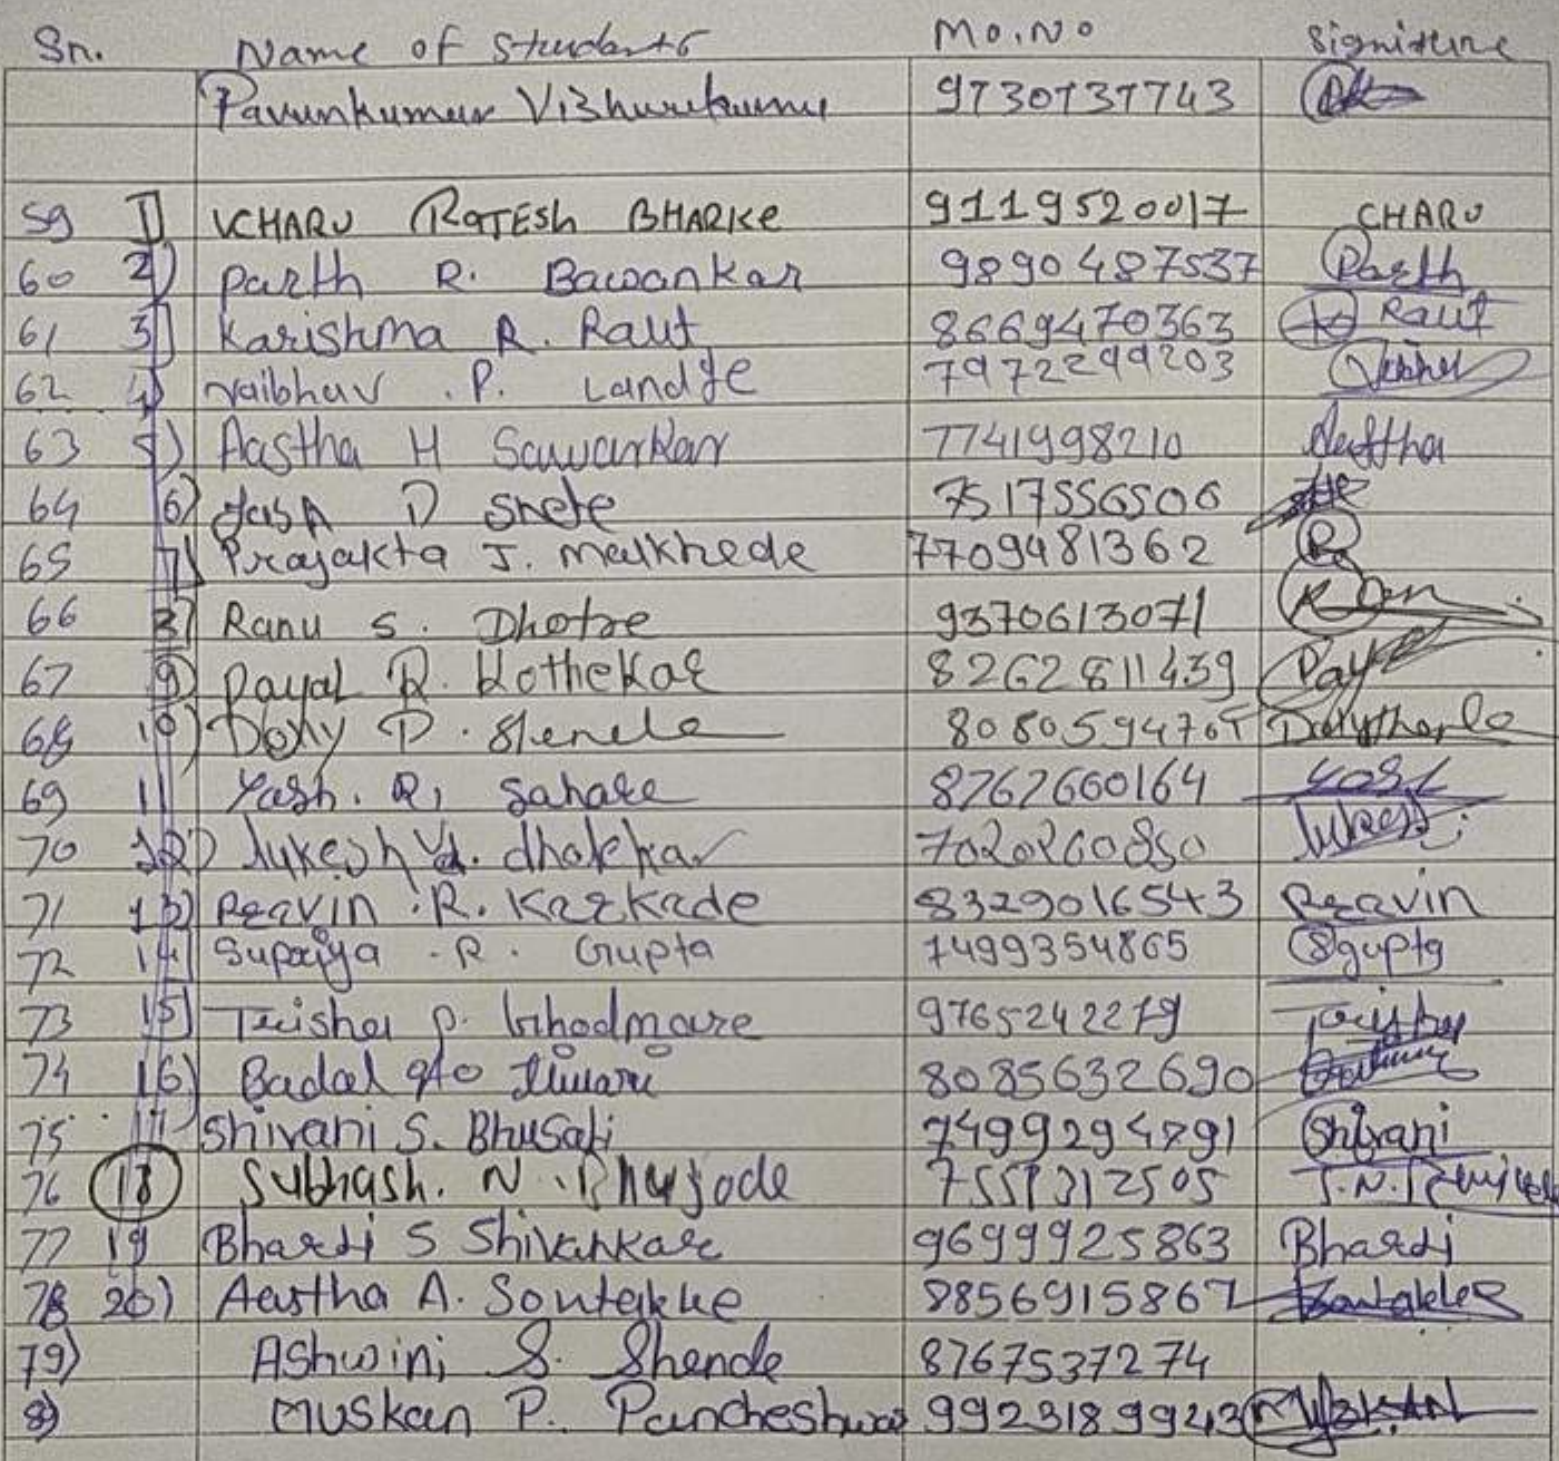 Sr. Name of Students Mo.No Signiture
Pavunkumar 9730737743
59 1) VCHARU RaTESh BHARKe 9119520017 CHARU
60 2) Parth R. Bawankar 9890487537 Parth
61 3) Karishma R. Raut 8669470363 Raut
62 4) Vaibhav .P. Landge 7972299203
63 5) Aastha H Sawarkar 7741998210 Aastha
64 6) D 7517556506
65 7) Prajakta J. Malkhede 7709481362 P
66 8) Ranu S. Dhotre 9370613071
67 9) Payal R. Kothekar 8262811439 Payal
68 10) Dolly D. 808059470
69 11 Yash. R, Sahare 8762660164 Yash
70 12) lukesh 7020260850 lukesh
71 13) Pravin .R. Karkade 8329016543 Pravin
72 14) Supriya .R. Gupta 7499354865 Sgupta
73 15) Trisha P. Ghodmare 9765242279 Trisha
74 16) Badal 8085632690
75 17 Shivani S. Bhusari 7499294791 Shivani
76 18 Subhash. N.
77 19 Bharti S Shivankar 9699925863 Bharti
78 20) Aastha A. Sontakke 8856915867 Sontakke
79) Ashwini S. Shende 8767537274
8) Muskan P. Pancheshwar 9923189943 MUSKAN